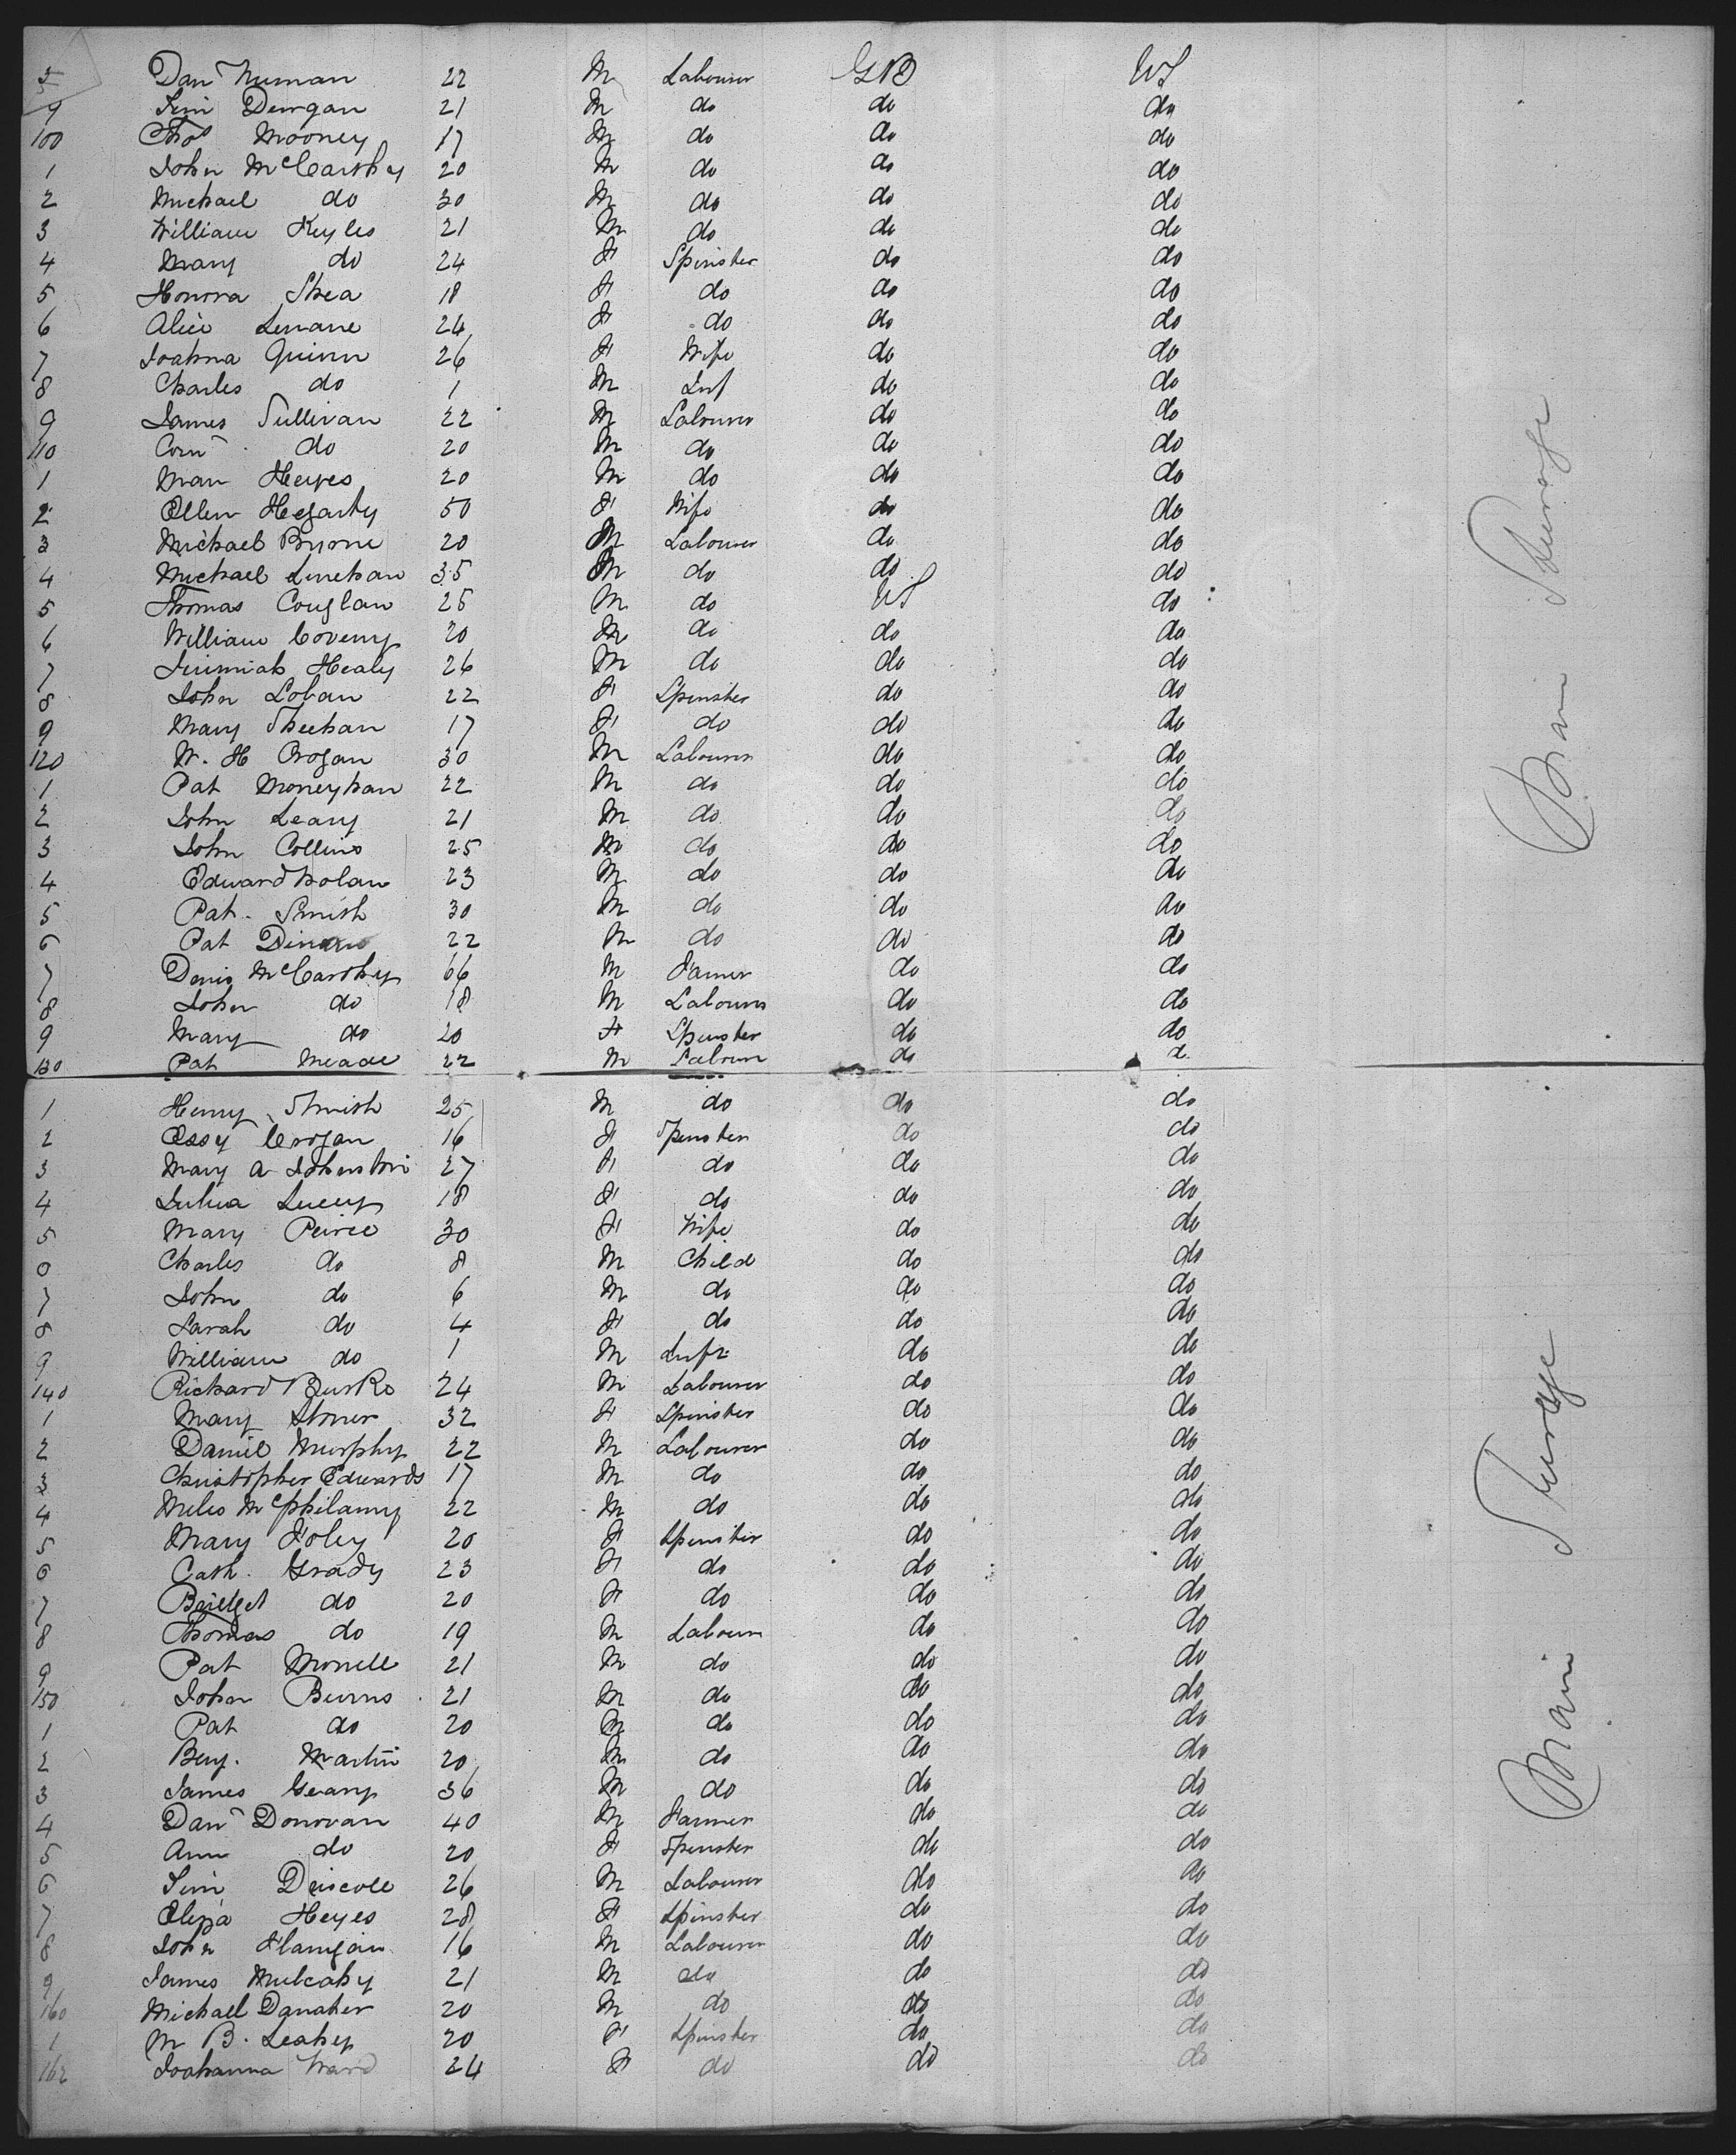 Dan Numan 22 M Labourer GB US
9 Tim Durgan 21 M do do do
100 Thos Mooney 17 M do do do
1 John McCarthy 20 M do do do
2 Michael do 30 M do do do
3 William Kyles 21 M do do do
4 Mary do 24 F Spinster do do
5 Honora Shea 18 F do do do
6 Alice Linnane 24 F do do do
7 Joahna Quinn 26 F Wife do do
8 Charles do 1 M Inf do do
9 James Sullivan 22 M Labourer do do
110 Corn do 20 M do do do
1 Man Heyes 20 M do do do
2 Ellen Hegarty 50 F Wife do do
3 Michael Byrne 20 M Labourer do do
4 Michael Linehan 35 M do do do
5 Thomas Couglan 25 M do US do
6 William Coveny 20 M do do do
7 Jeremiah Healy 26 M do do do
8 John Loban 22 F Spinster do do
9 Mary Sheehan 17 F do do do
120 W. H Brogan 30 M Labourer do do
1 Pat Moneyhan 22 M do do do
2 John Leary 21 M do do do
3 John Collins 25 M do do do
4 Edward Nolan 23 M do do do
5 Pat. Smith 30 M do do do
6 Pat 22 M do do do
7 Denis McCarthy 66 M Famer do do
8 John do 18 M Labourer do do
9 Mary do 20 F Spinster do do
130 Pat Meade 22 M Labour do d
1 Henry Smith 25 M do do do
2 Essy Crogan 16 F Spinster do do
3 Mary A Johnston 27 F do do do
4 Julia Lucey 18 F do do do
5 Mary Peirce 30 F Wife do do
6 Charles do 8 M Child do do
7 John do 6 M do do do
8 Sarah do 4 F do do do
9 William do 1 M Inft do do
140 Richard Burke 24 M Labourer do do
1 Mary Stoner 32 F Spinster do do
2 Daniel Murphy 22 M Labourer do do
3 Christopher Edwards 17 M do do do
4 Miles McPhilamy 22 M do do do
5 Mary Foley 20 F Spinster do do
6 Cath. Grady 23 F do do do
7 Bridget do 20 F do do do
8 Thomas do 19 M Labourer do do
9 Pat Morrell 21 M do do do
150 John Burns 21 M do do do
1 Pat do 20 M do do do
2 Benj. Martin 20 M do do do
3 James Geary 36 M do do do
4 Dan Donovan 40 M Farmer do do
5 Ann do 20 F Spinster do do
6 Tim Driscoll 26 M Labourer do do
7 Eliza Heyes 28 F Spinster do do
8 John Flanigan 16 M Labourer do do
9 James Mulcahy 21 M do do do
160 Michael Danaher 20 M do do do
1 M B. Leahy 20 F Spinster do do
162 Joahanna Ward 24 F do do do
Main Steerage
Main Steerage